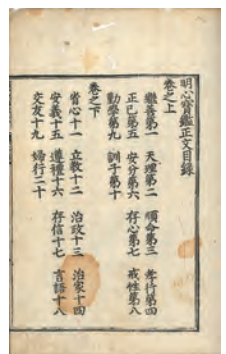 明心寶鑑正文目錄
卷之上
繼善第一　天理第二　順命第三　孝行第四
正己第五　安分第六　存心第七　戒性第八
勤學第九　訓子第十
卷之下
省心十一　立教十二　治政十三　治家十四
安義十五　遵禮十六　存信十七　言語十八
交友十九　婦行二十